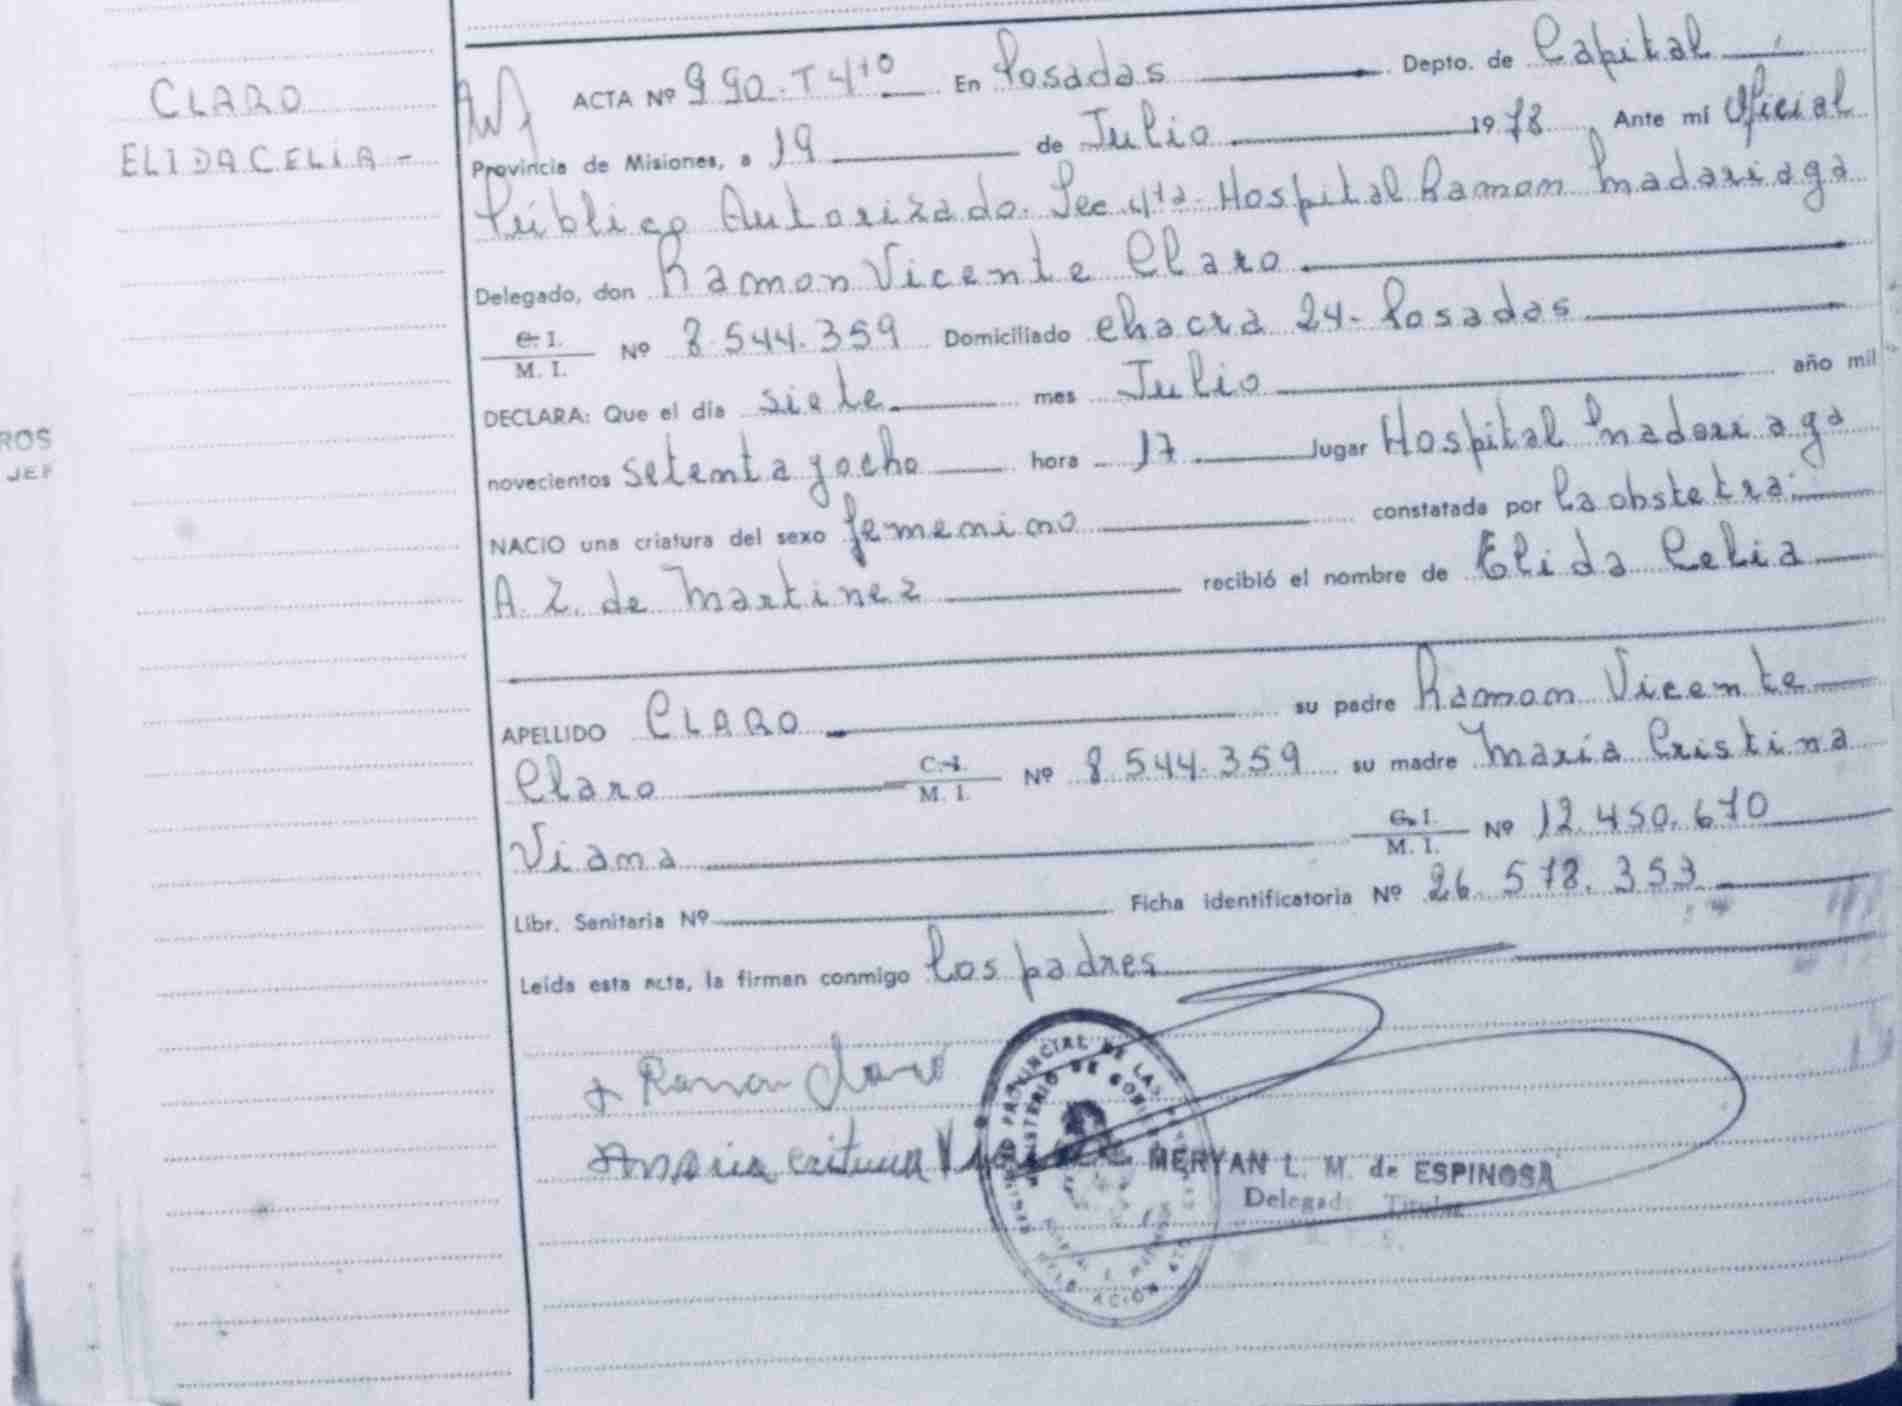 CLARO
ELIDA CELIA -
ROS
JEF
ACTA Nº 990. T 4to En Posadas Depto. de Capital
Provincia de Misiones, a 19 de Julio 1978 Ante mí Oficial
Público Autorizado. Sec 4ta. Hospital Ramon Madariaga
Delegado, don Ramon Vicente Claro
C. I.
M. I. Nº 8.544.359 Domiciliado chacra 24 - Posadas
DECLARA: Que el día siete mes Julio año mil
novecientos setenta y ocho hora 17 lugar Hospital Madariaga
NACIO una criatura del sexo femenino constatada por la obstetra:
A. Z. de Martinez recibió el nombre de Elida Celia
APELLIDO CLARO su padre Ramon Vicente
Claro C. I.
M. I. Nº 8.544.359 su madre María Cristina
Viana C. I.
M. I. Nº 12.450.670
Libr. Sanitaria Nº Ficha identificatoria Nº 26.578.353
Leída esta acta, la firman conmigo los padres
Ramon Claro
PROVINCIAL DE LAS
MINISTERIO DE GOB
MERYAN L. M. de ESPINOSA
Delegad Titular